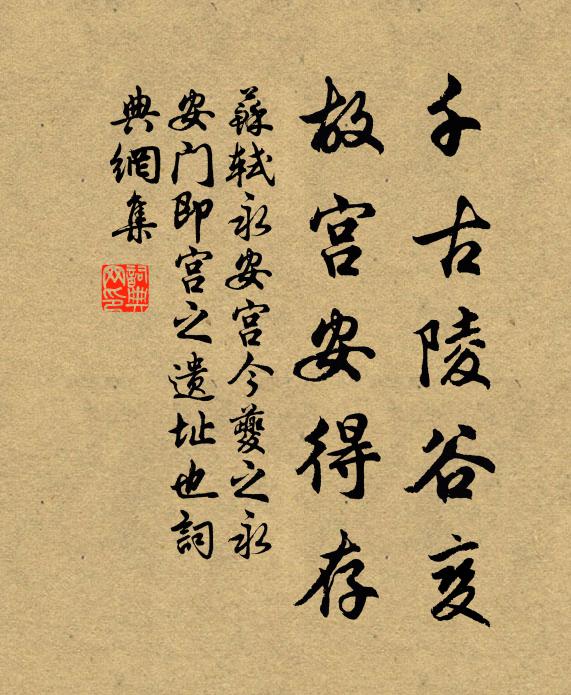 千古陵谷变
故宫安得存
蘇轼永安宫今夔之永
安门即宫之遗址也詞
典網集
詞典網印